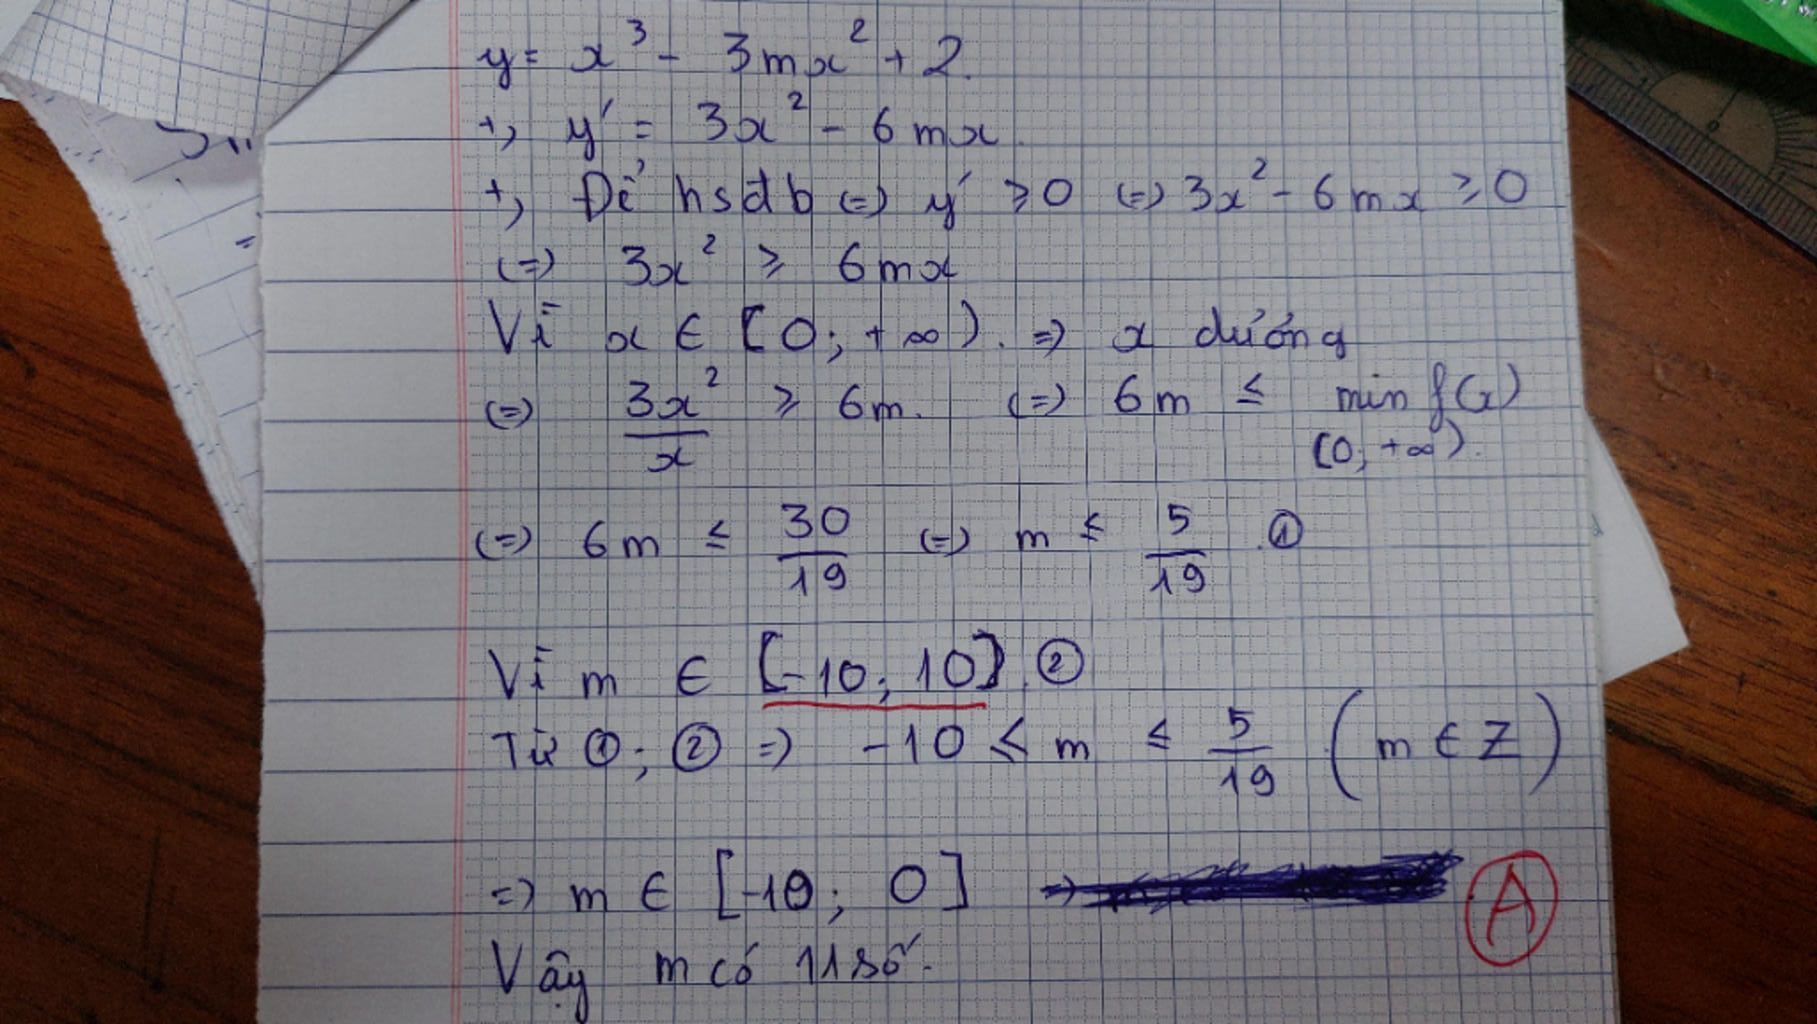 y = x³ - 3mx² + 2.
+, y' = 3x² - 6mx.
+, Để hsđb (=) y' ≥ 0 (=) 3x² - 6mx ≥ 0
(=) 3x² ≥ 6mx
Vì x ∈ [0; +∞). => x dương
(=) 3x²/x ≥ 6m. (=) 6m ≤ min f(x)
(0; +∞).
(=) 6m ≤ 30/19 (=) m ≤ 5/19 ①
Vì m ∈ [-10; 10] ②
Từ ①; ② => -10 ≤ m ≤ 5/19 (m ∈ Z)
=> m ∈ [-10; 0] =>
A
Vậy m có 11 số.